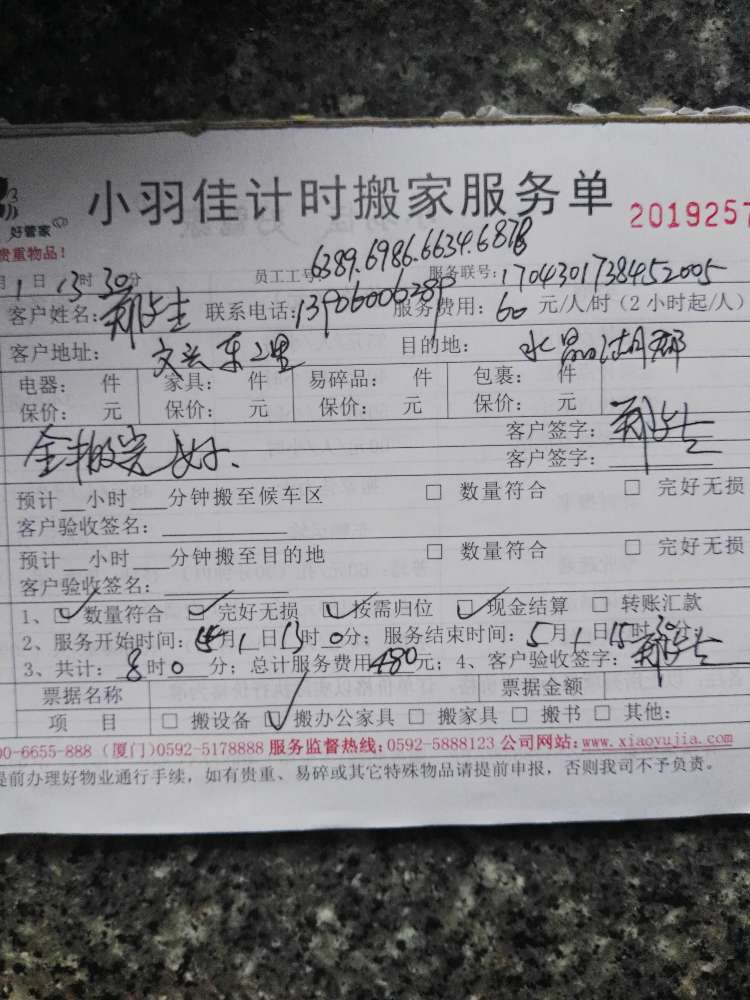 小羽佳计时搬家服务单
2019257
好管家
贵重物品!
月1日13时30分 员工工号:6389.6986.6634.6878 服务联号:1704301738452005
客户姓名:郑先生 联系电话:13906006289 服务费用:60元/人/时(2小时起/人)
客户地址:文兴东二里 目的地:水晶湖郡
电器: 件 家具: 件 易碎品: 件 包裹: 件
保价: 元 保价: 元 保价: 元 保价: 元
全搬完好. 客户签字:郑先生
客户签字:
预计__小时___分钟搬至候车区 □ 数量符合 □ 完好无损
客户验收签名:
预计__小时___分钟搬至目的地 □ 数量符合 □ 完好无损
客户验收签名:
1、☑ 数量符合 ☑ 完好无损 ☑ 按需归位 ☑ 现金结算 □ 转账汇款
2、服务开始时间:5月1日13时0分;服务结束时间:5月1日15时30分;
3、共计:8时0分;总计服务费用480元;4、客户验收签字:郑先生
票据名称 票据金额
项 目 □ 搬设备 ☑ 搬办公家具 □ 搬家具 □ 搬书 □ 其他:
00-6655-888(厦门)0592-5178888 服务监督热线:0592-5888123 公司网站:www.xiaoyujia.com
提前办理好物业通行手续,如有贵重、易碎或其它特殊物品请提前申报,否则我司不予负责。